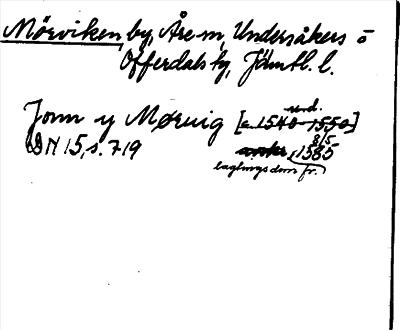 Mörviken by, Åre sn, Undersåkers o
Offerdals tg, Jämtl. l.
Jonn y Møruig [c. 1540-1550] und.
DN 15, s. 719 8/5 1585
lagtingsdom fr.